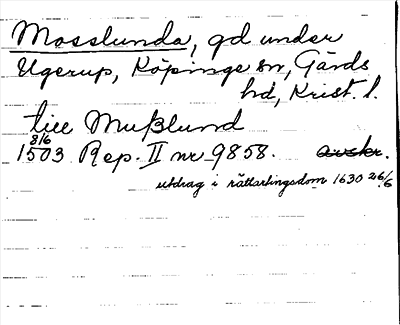 Mosslunda, gd under
Ugerup, Köpinge sn, Gärds
hd, Krist. l.
till Mußlund
8/6
1503 Rep. II nr 9858. avskr.
utdrag i rättartingsdom 1630 26/6